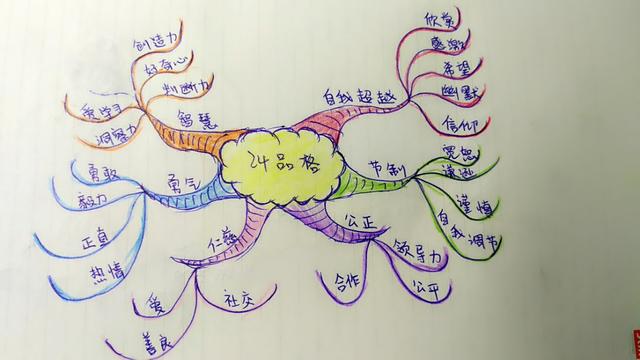 24品格
智慧
创造力
好奇心
判断力
爱学习
洞察力
勇气
勇敢
毅力
正直
热情
仁慈
爱
善良
社交
公正
领导力
公平
合作
节制
宽恕
谦逊
谨慎
自我调节
自我超越
欣赏
感激
希望
幽默
信仰